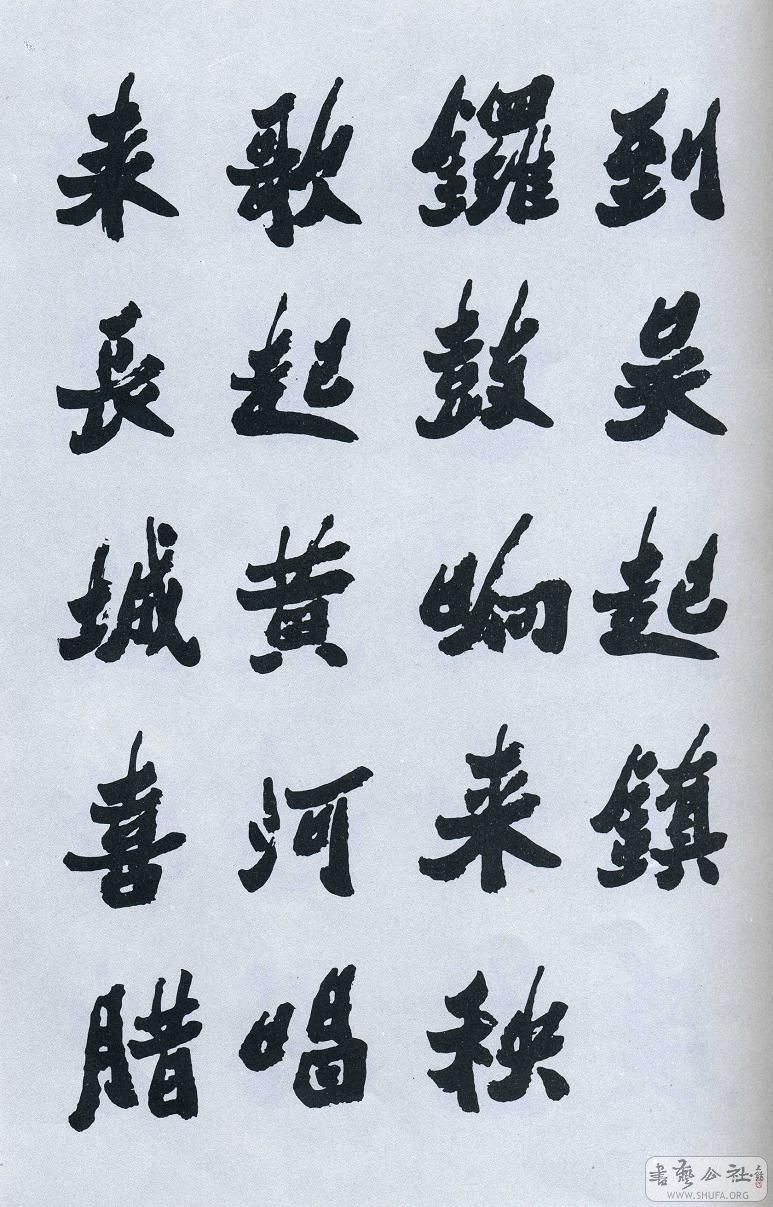 到吴起鎮
鑼鼓响来秧
歌起黄河唱
来長城喜腊
書藝公社
WWW.SHUFA.ORG